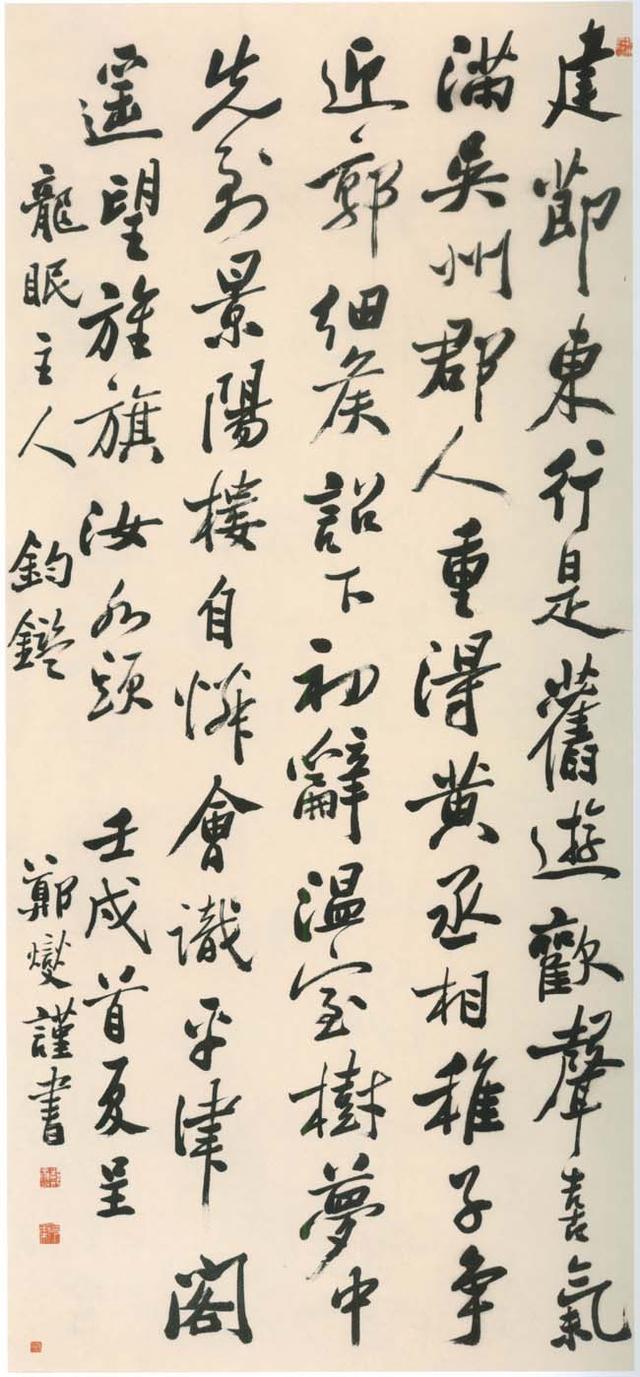 建節東行是舊遊歡聲喜氣
滿吳州郡人重得黃丞相稚子爭
迎郭細侯詔下初辭溫室樹夢中
先到景陽樓自憐會識平津閣
遥望旌旗汝水頭 壬戌首夏呈
龍眠主人 鈞鑑 鄭燮謹書